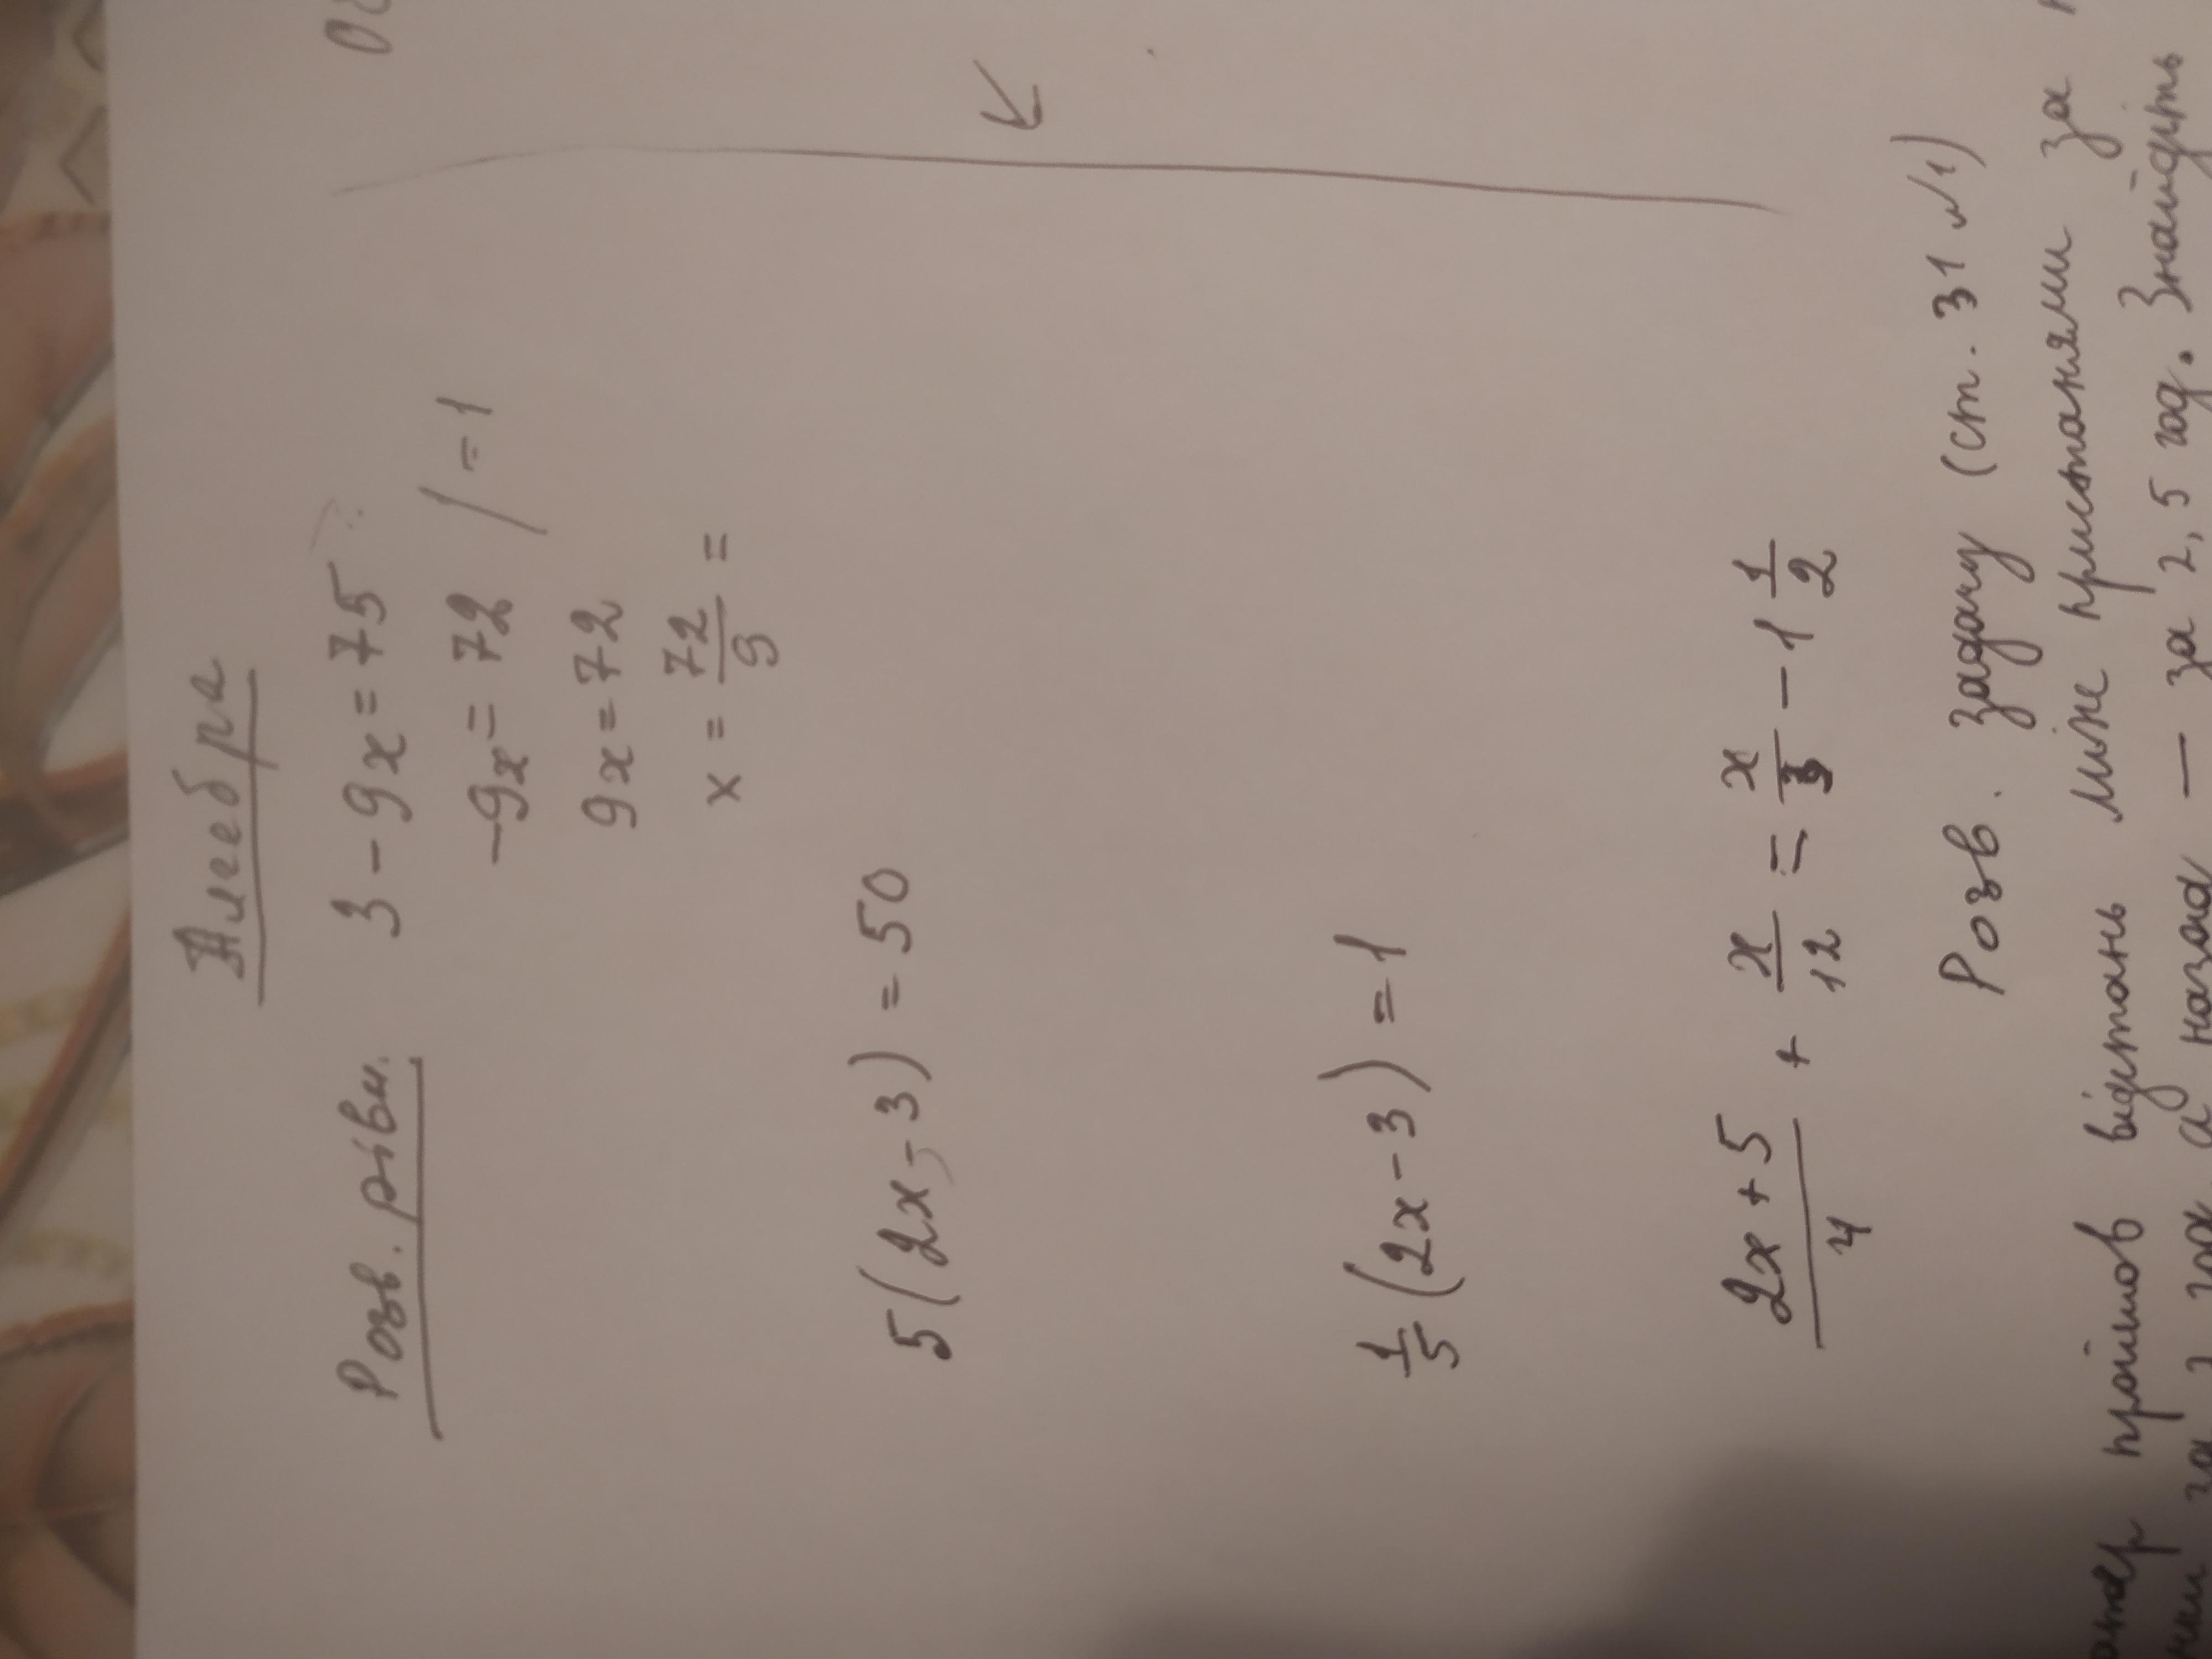 Алгебра
Розв. рівн. 3 - 9x = 75
-9x = 72 / -1
9x = 72
x = 72/9 =
5(2x - 3) = 50
1/5 (2x - 3) = 1
2x + 5/4 + x/12 = x/3 - 1 1/2
Розв. задачу (ст. 31 №1)
пройшов відстань між пристанями за
а назад — за 2,5 год. Знайдіть